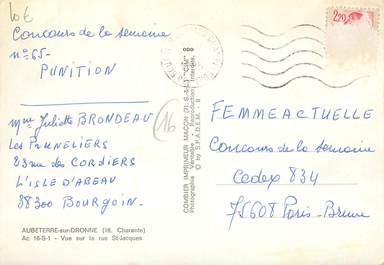 10€
Concours de la semaine
n° 65-
PUNITION
Mme Juliette BRONDEAU
Les PRUNELIERS
23 rue des CORDIERS
L'ISLE D'ABEAU
38300 Bourgoin.
16
AUBETERRE-sur-DRONNE (16. Charente)
Ac 16-S-1 - Vue sur la rue St-Jacques
COMBIER IMPRIMEUR MACON (71. S.-&-L.) "CIM"
Photographie Véritable - Reproduction Interdite
© by S.P.A.D.E.M. - 9
2,20
FEMME ACTUELLE
Concours de la semaine
Cedex 834
75608 Paris-Brune